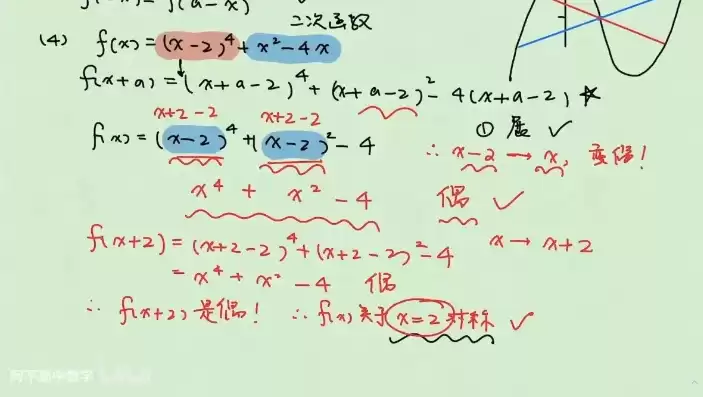 f(a-x)
二次函数
(4) f(x) = (x-2)⁴ + x²-4x
f(x+a) = (x+a-2)⁴ + (x+a-2)² - 4(x+a-2)
x+2-2 x+2-2 ① 展 ✓
f(x) = (x-2)⁴ + (x-2)² - 4 ∴ x-2 → x, 变偶!
x⁴ + x² - 4 偶 ✓
f(x+2) = (x+2-2)⁴ + (x+2-2)² - 4 x → x+2
= x⁴ + x² - 4 偶
∴ f(x+2) 是偶! ∴ f(x) 关于 x=2 对称 ✓